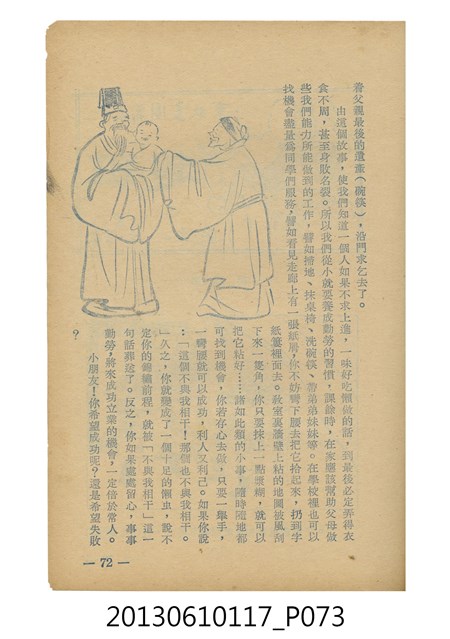 着父親最後的遺產(碗筷),沿門求乞去了。
由這個故事,使我們知道一個人如果不求上進,一味好吃懶做的話,到最後必定弄得衣
食不周,甚至身敗名裂。所以我們從小就要養成勤勞的習慣。課餘時,在家應該幫助父母做
些我們能力所能做到的工作,譬如掃地、抹桌椅、洗碗筷、帶弟弟妹妹等。在學校裡也可以
找機會盡量爲同學們服務,譬如看見走廊上有一張紙屑,你不妨彎下腰去把它拾起來,扔到字
紙簍裡面去。教室裏牆壁上粘的地圖被風刮
下來一隻角,你只要抹上一點漿糊,就可以
把它粘好……諸如此類的小事,隨時隨地都
可找到機會,你若存心去做,只要一舉手,
一彎腰就可以成功,利人又利己。如果你說
:「這個不與我相干!那個也不與我相干。
」久之,你就變成了一個十足的懶虫,說不
定你的錦繡前程,就被「不與我相干」這一
句話葬送了。反之,你如果處處留心,事事
勤勞,將來成功立業的機會,一定倍於常人。
小朋友!你希望成功呢?還是希望失敗
?
— 72 —
20130610117_P073